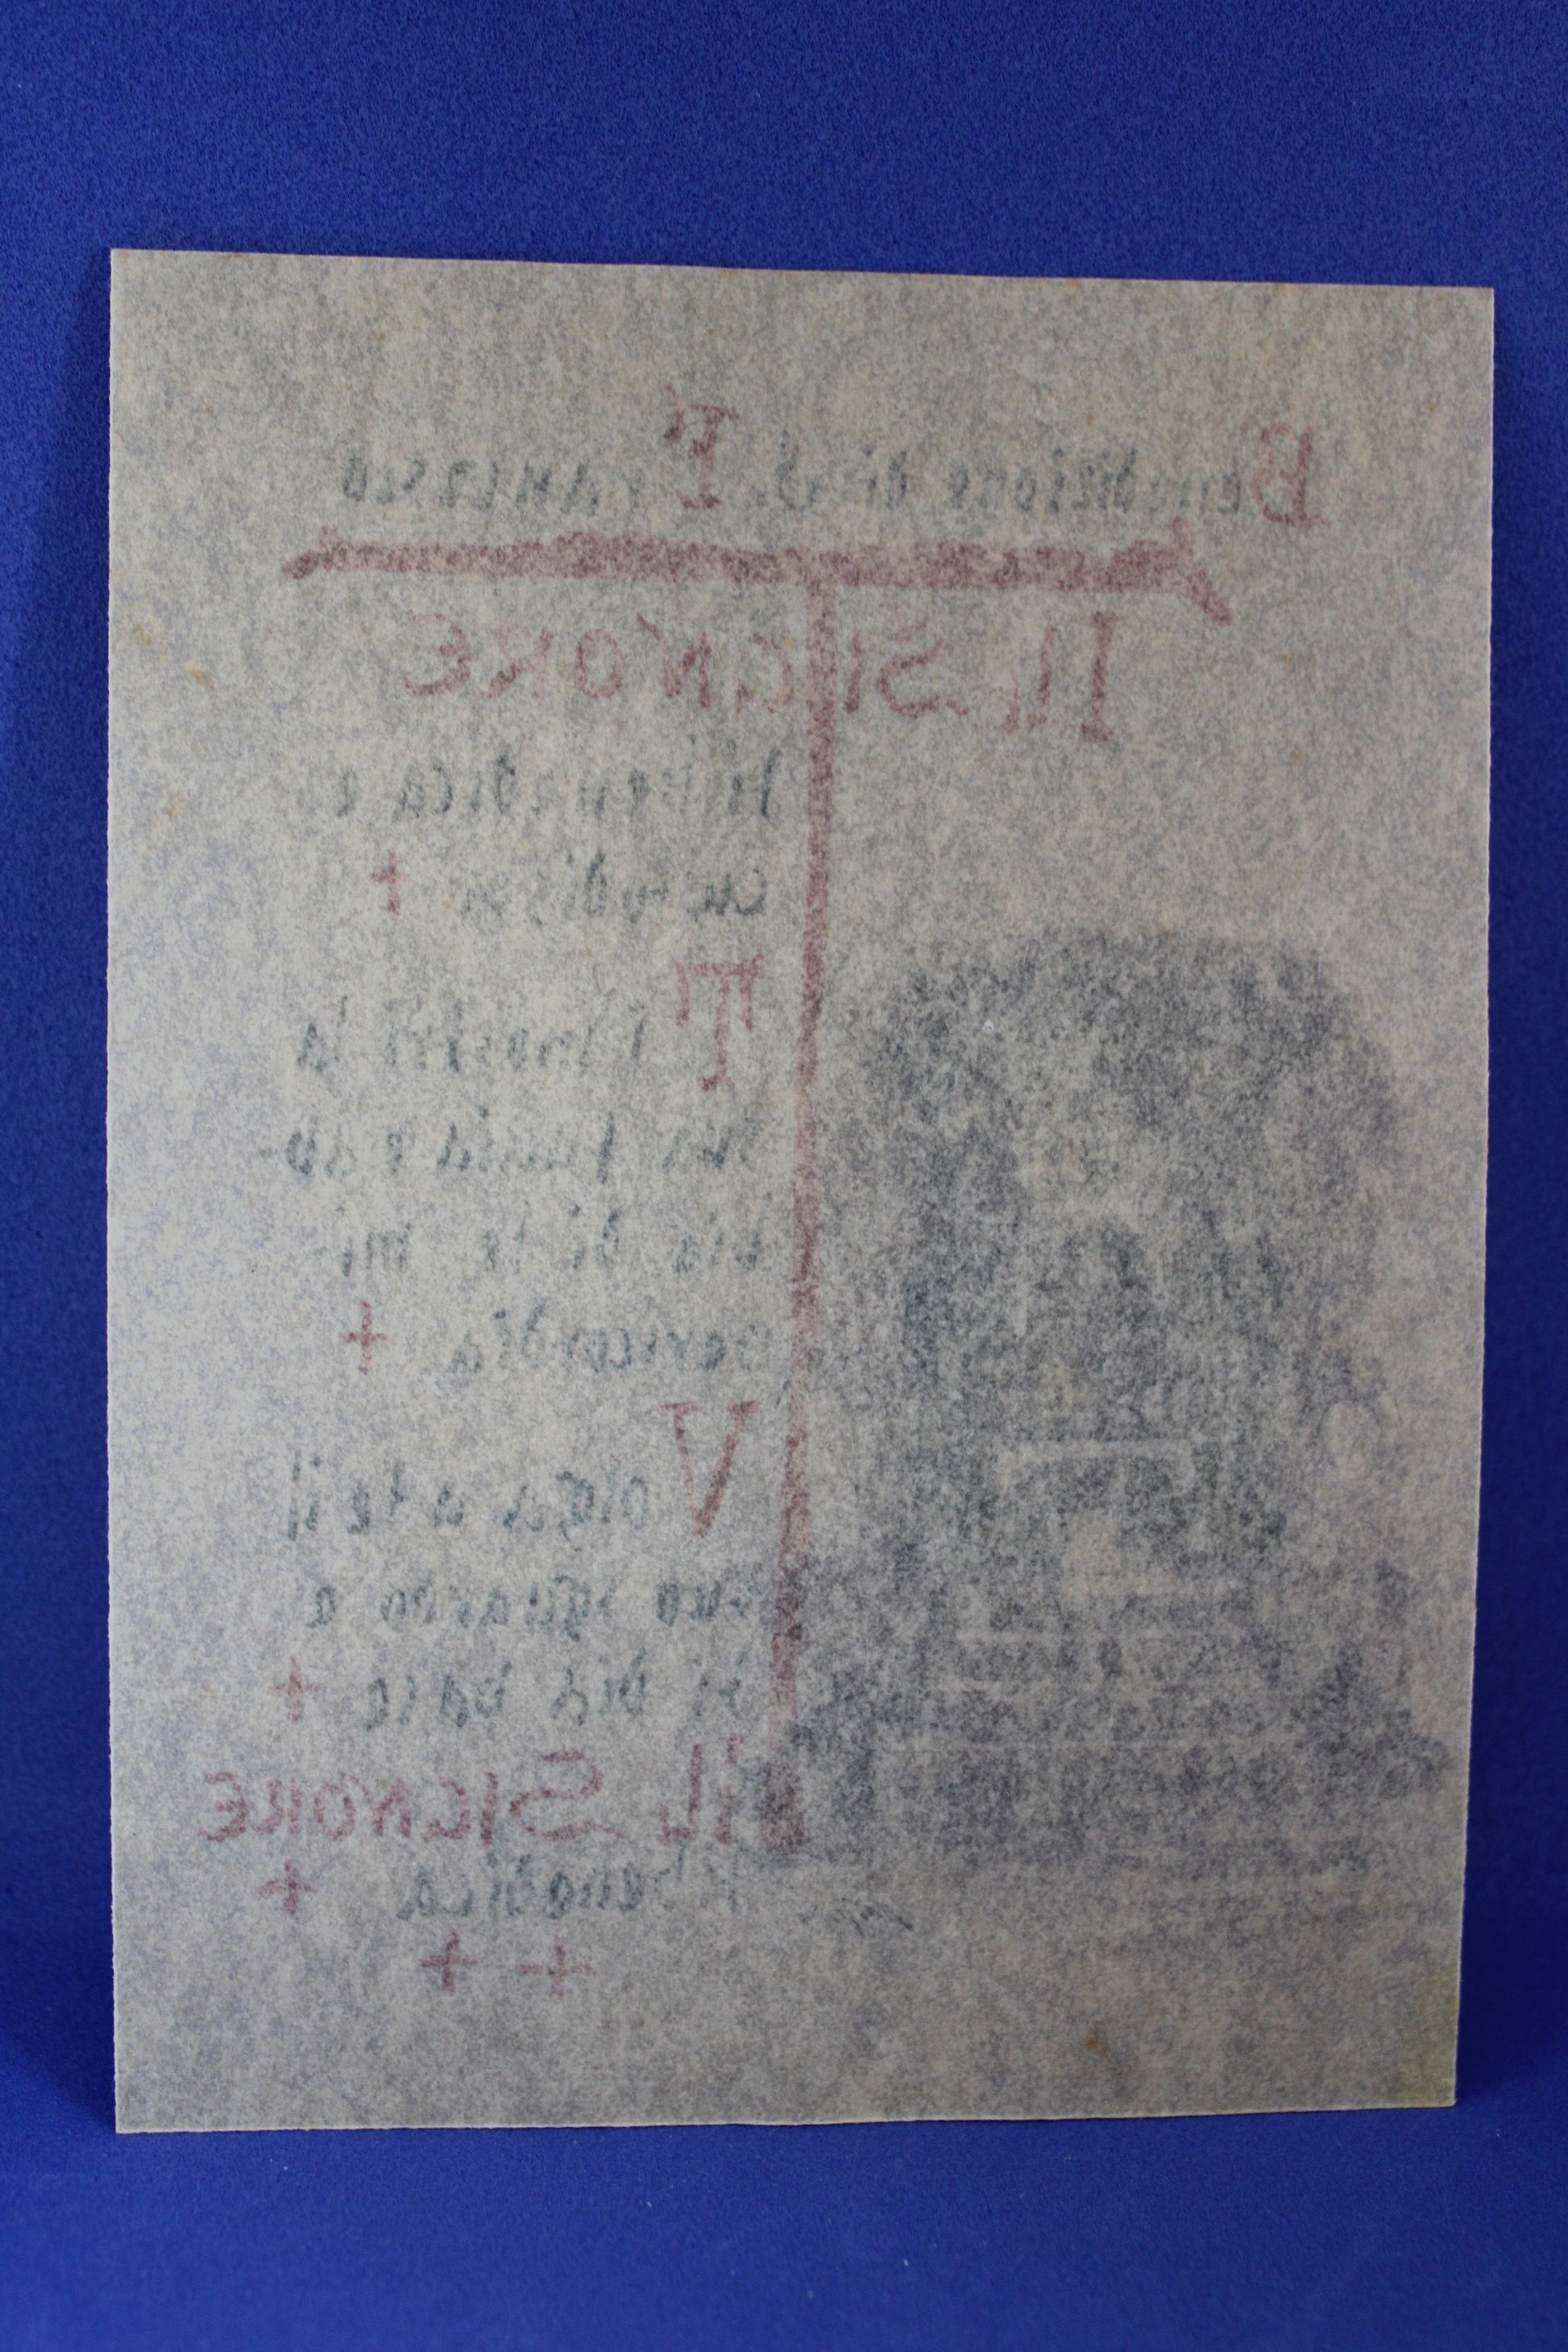 Benedizione di S. Francesco
IL SIGNORE
ti benedica e
custodisca +
Ti mostri la
sua faccia e ab-
bia di te mi
sericordia +
Volga a te il
suo sguardo e
ti dia pace +
IL SIGNORE
ti benedica +
+ +